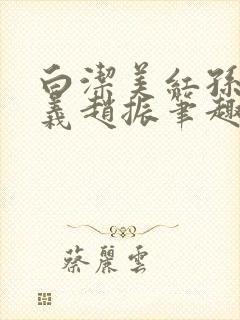 白潔美紅孫
義趙振筆趣
蔡麗雲